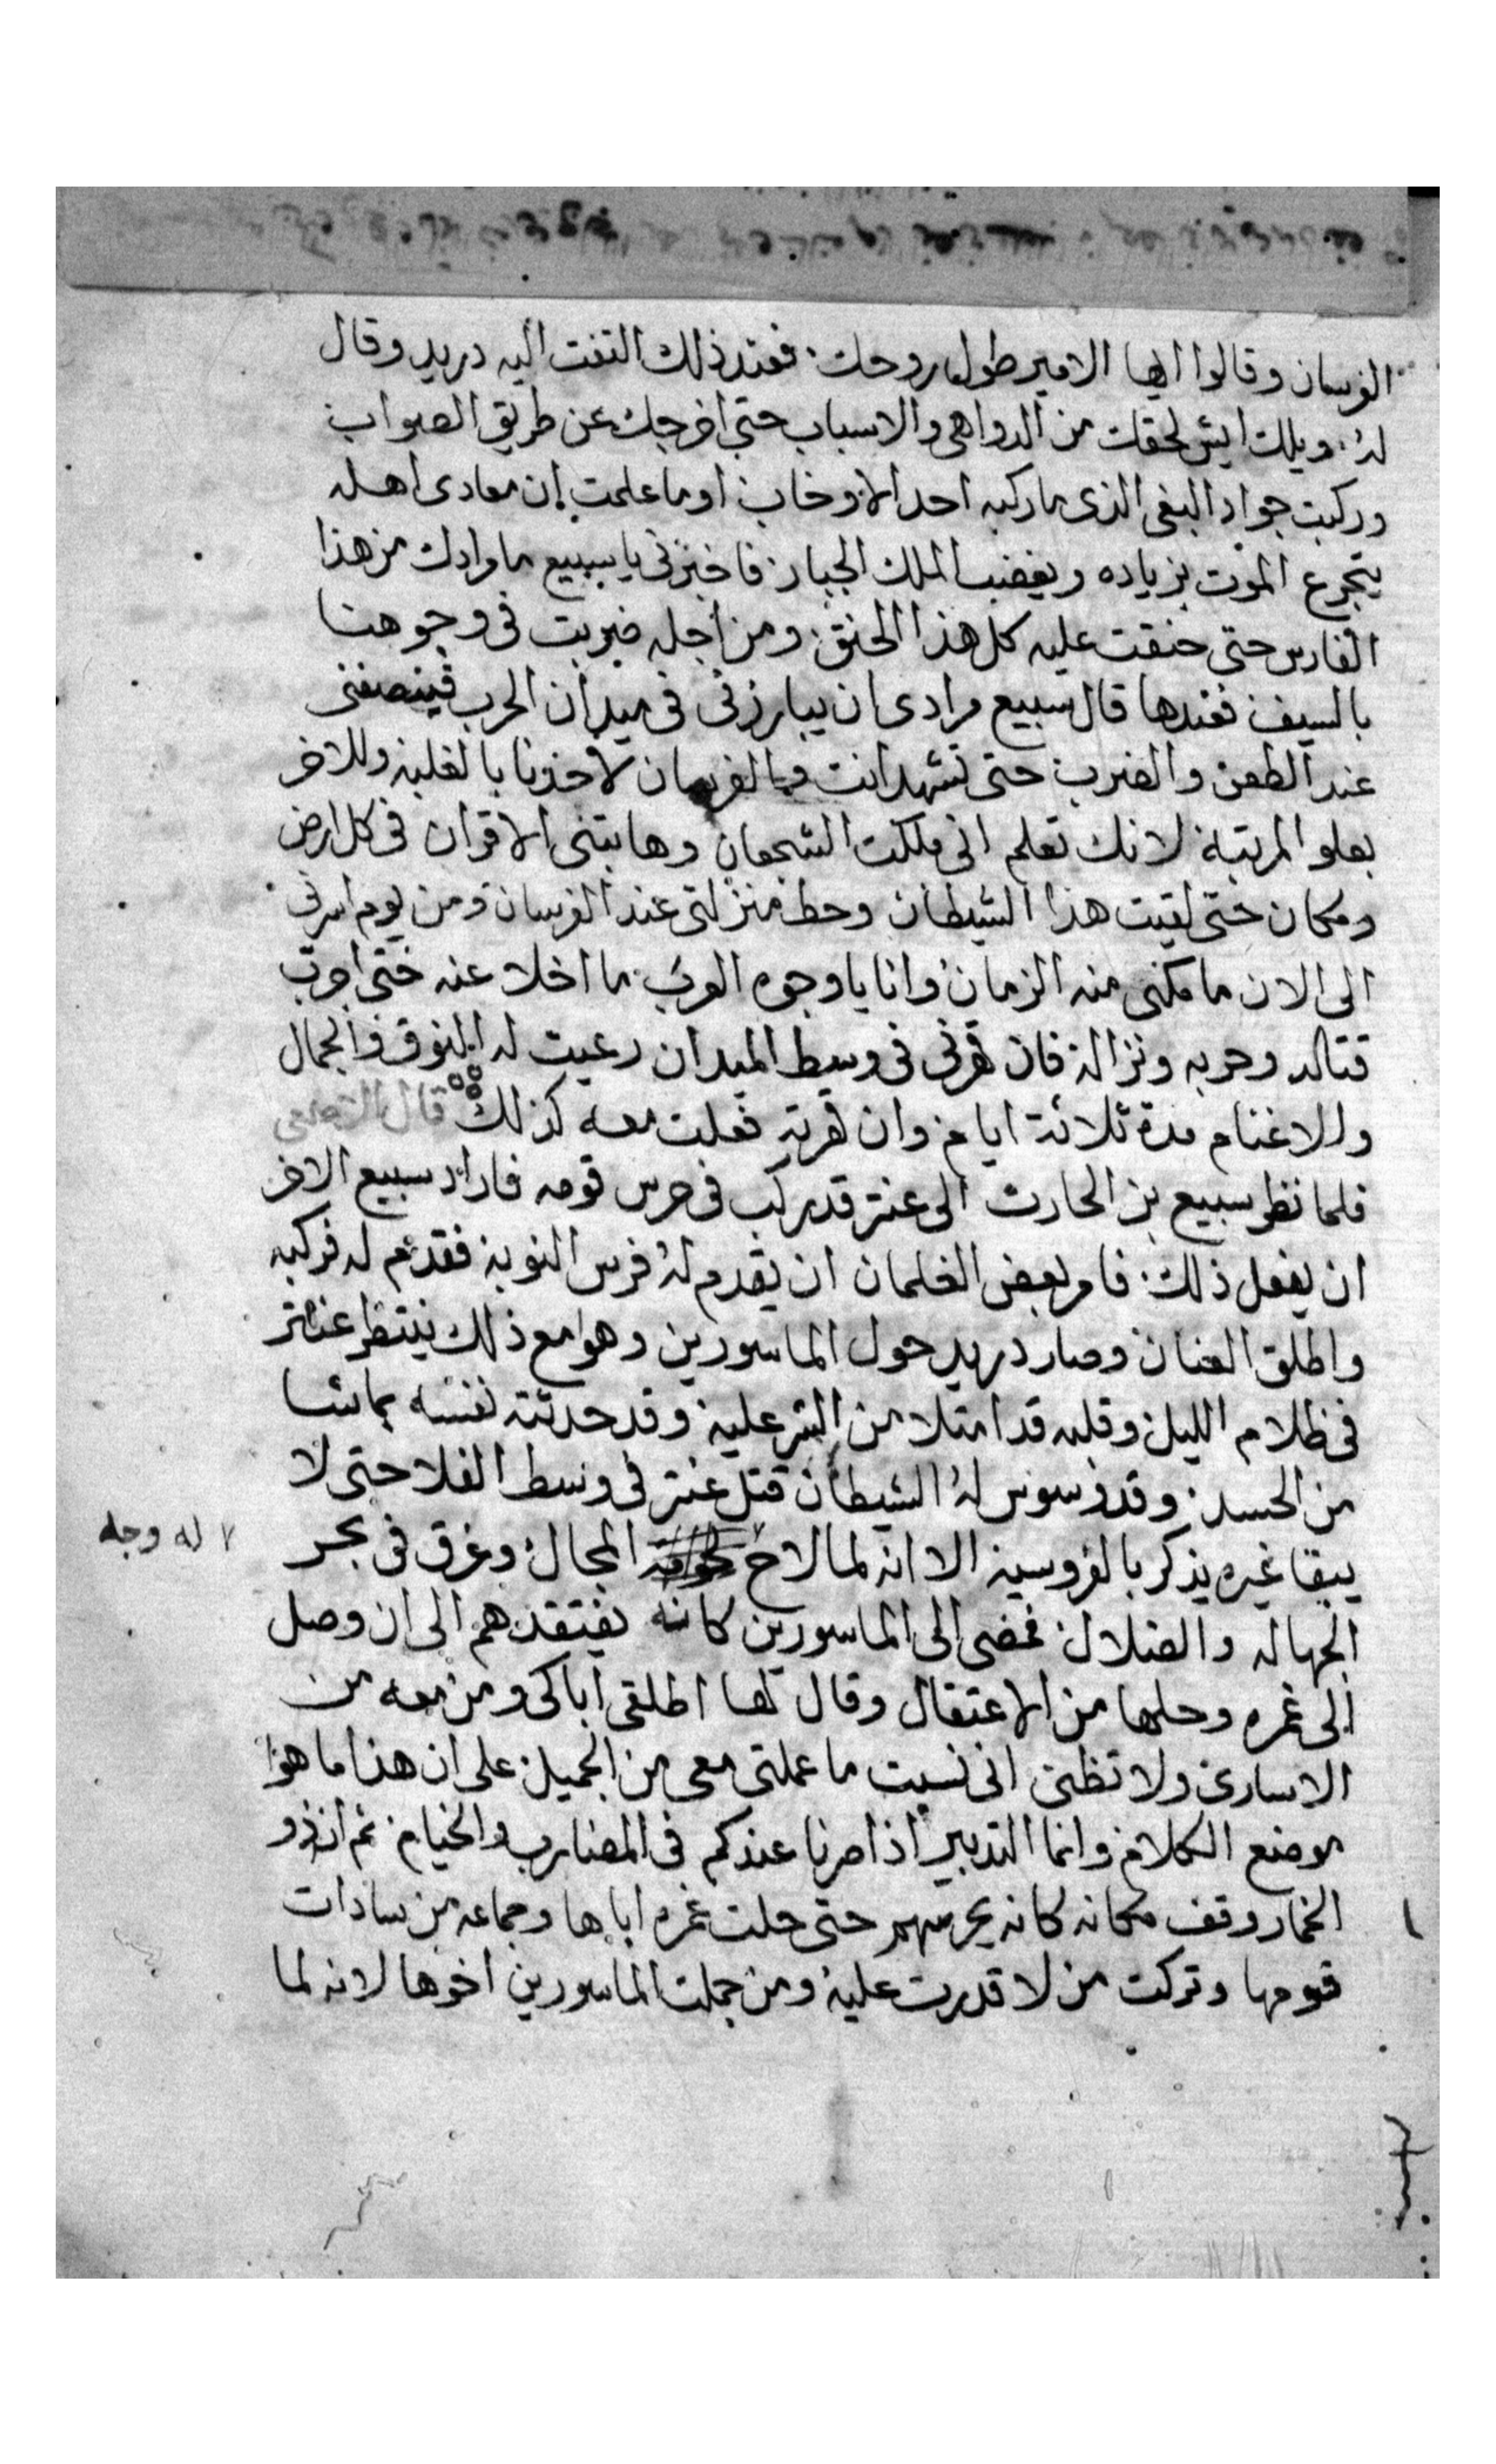 الفرسان وقالوا ايها الامير طول روحك فعند ذلك التفت اليه دريد وقال
له ويلك ايش لحقك من الدواهى والاسباب حتى اخرجك عن طريق الصواب
وركبت جواد البغى الذى ما ركبه احد الا وخاب اوما علمت ان معادى اهله
يتجرع الموت بزياده ويغضب الملك الجبار فاخبرنى يا سبيع ما مرادك من هذا
الفارس حتى حنقت عليه كل هذا الحنق ومن اجله ضربت فى وجوهنا
بالسيف فعندها قال سبيع مرادى ان يبارزنى فى ميدان الحرب فينصفنى
عند الطعن والضرب حتى تشهد انت والفرسان لاحدنا بالغلبة وللاخر
بعلو المرتبة لانك تعلم انى ملكت الشجعان وهابتنى الاقران فى كل ارض
ومكان حتى لقيت هذا الشيطان وحط منزلتى عند الفرسان ومن يوم اسرنى
الى الان ما مكنى منه الزمان وانا يا وجوه العرب ما اخلا عنه حتى اجرب
قتاله وحربه ونزاله فان قهرنى فى وسط الميدان رعيت له النوق والجمال
والاغنام مدة ثلاثة ايام وان قهرته فعلت معه كذلك قال
فلما نظر سبيع بن الحارث الى عنتر قد ركب فى حرس قومه فاراد سبيع الاخر
ان يفعل ذلك فامر بعض الغلمان ان يقدم له فرس النوبة فقدم له فركبه
واطلق العنان وصار دريد حول الماسورين وهوا مع ذلك ينتظر عنتر
فى ظلام الليل وقلبه قد امتلا من الشر عليه وقد حدثته نفسه بماشا
من الحسد وقد وسوس له الشيطان قتل عنتر فى وسط الفلا حتى لا
يبقا غيره يذكر بالفروسية الا انه لما لاح المحال وغرق فى بحر
له وجه
الجهاله والضلال فمضى الى الماسورين كانه يفتقدهم الى ان وصل
الى غمره وحلها من الاعتقال وقال لها اطلقى اباكى ومن معه من
الاسارى ولا تظنى انى نسيت ما عملتى معى من الجميل على ان هذا ما هوا
موضع الكلام وانما التدبير اذا صرنا عندكم فى المضارب والخيام ثم ان ذو
الخمار وقف مكانه كانه يحرسهم حتى حلت غمره اباها وجماعه من سادات
قومها وتركت من لا قدرت عليه ومن جملت الماسورين اخوها لانه لما